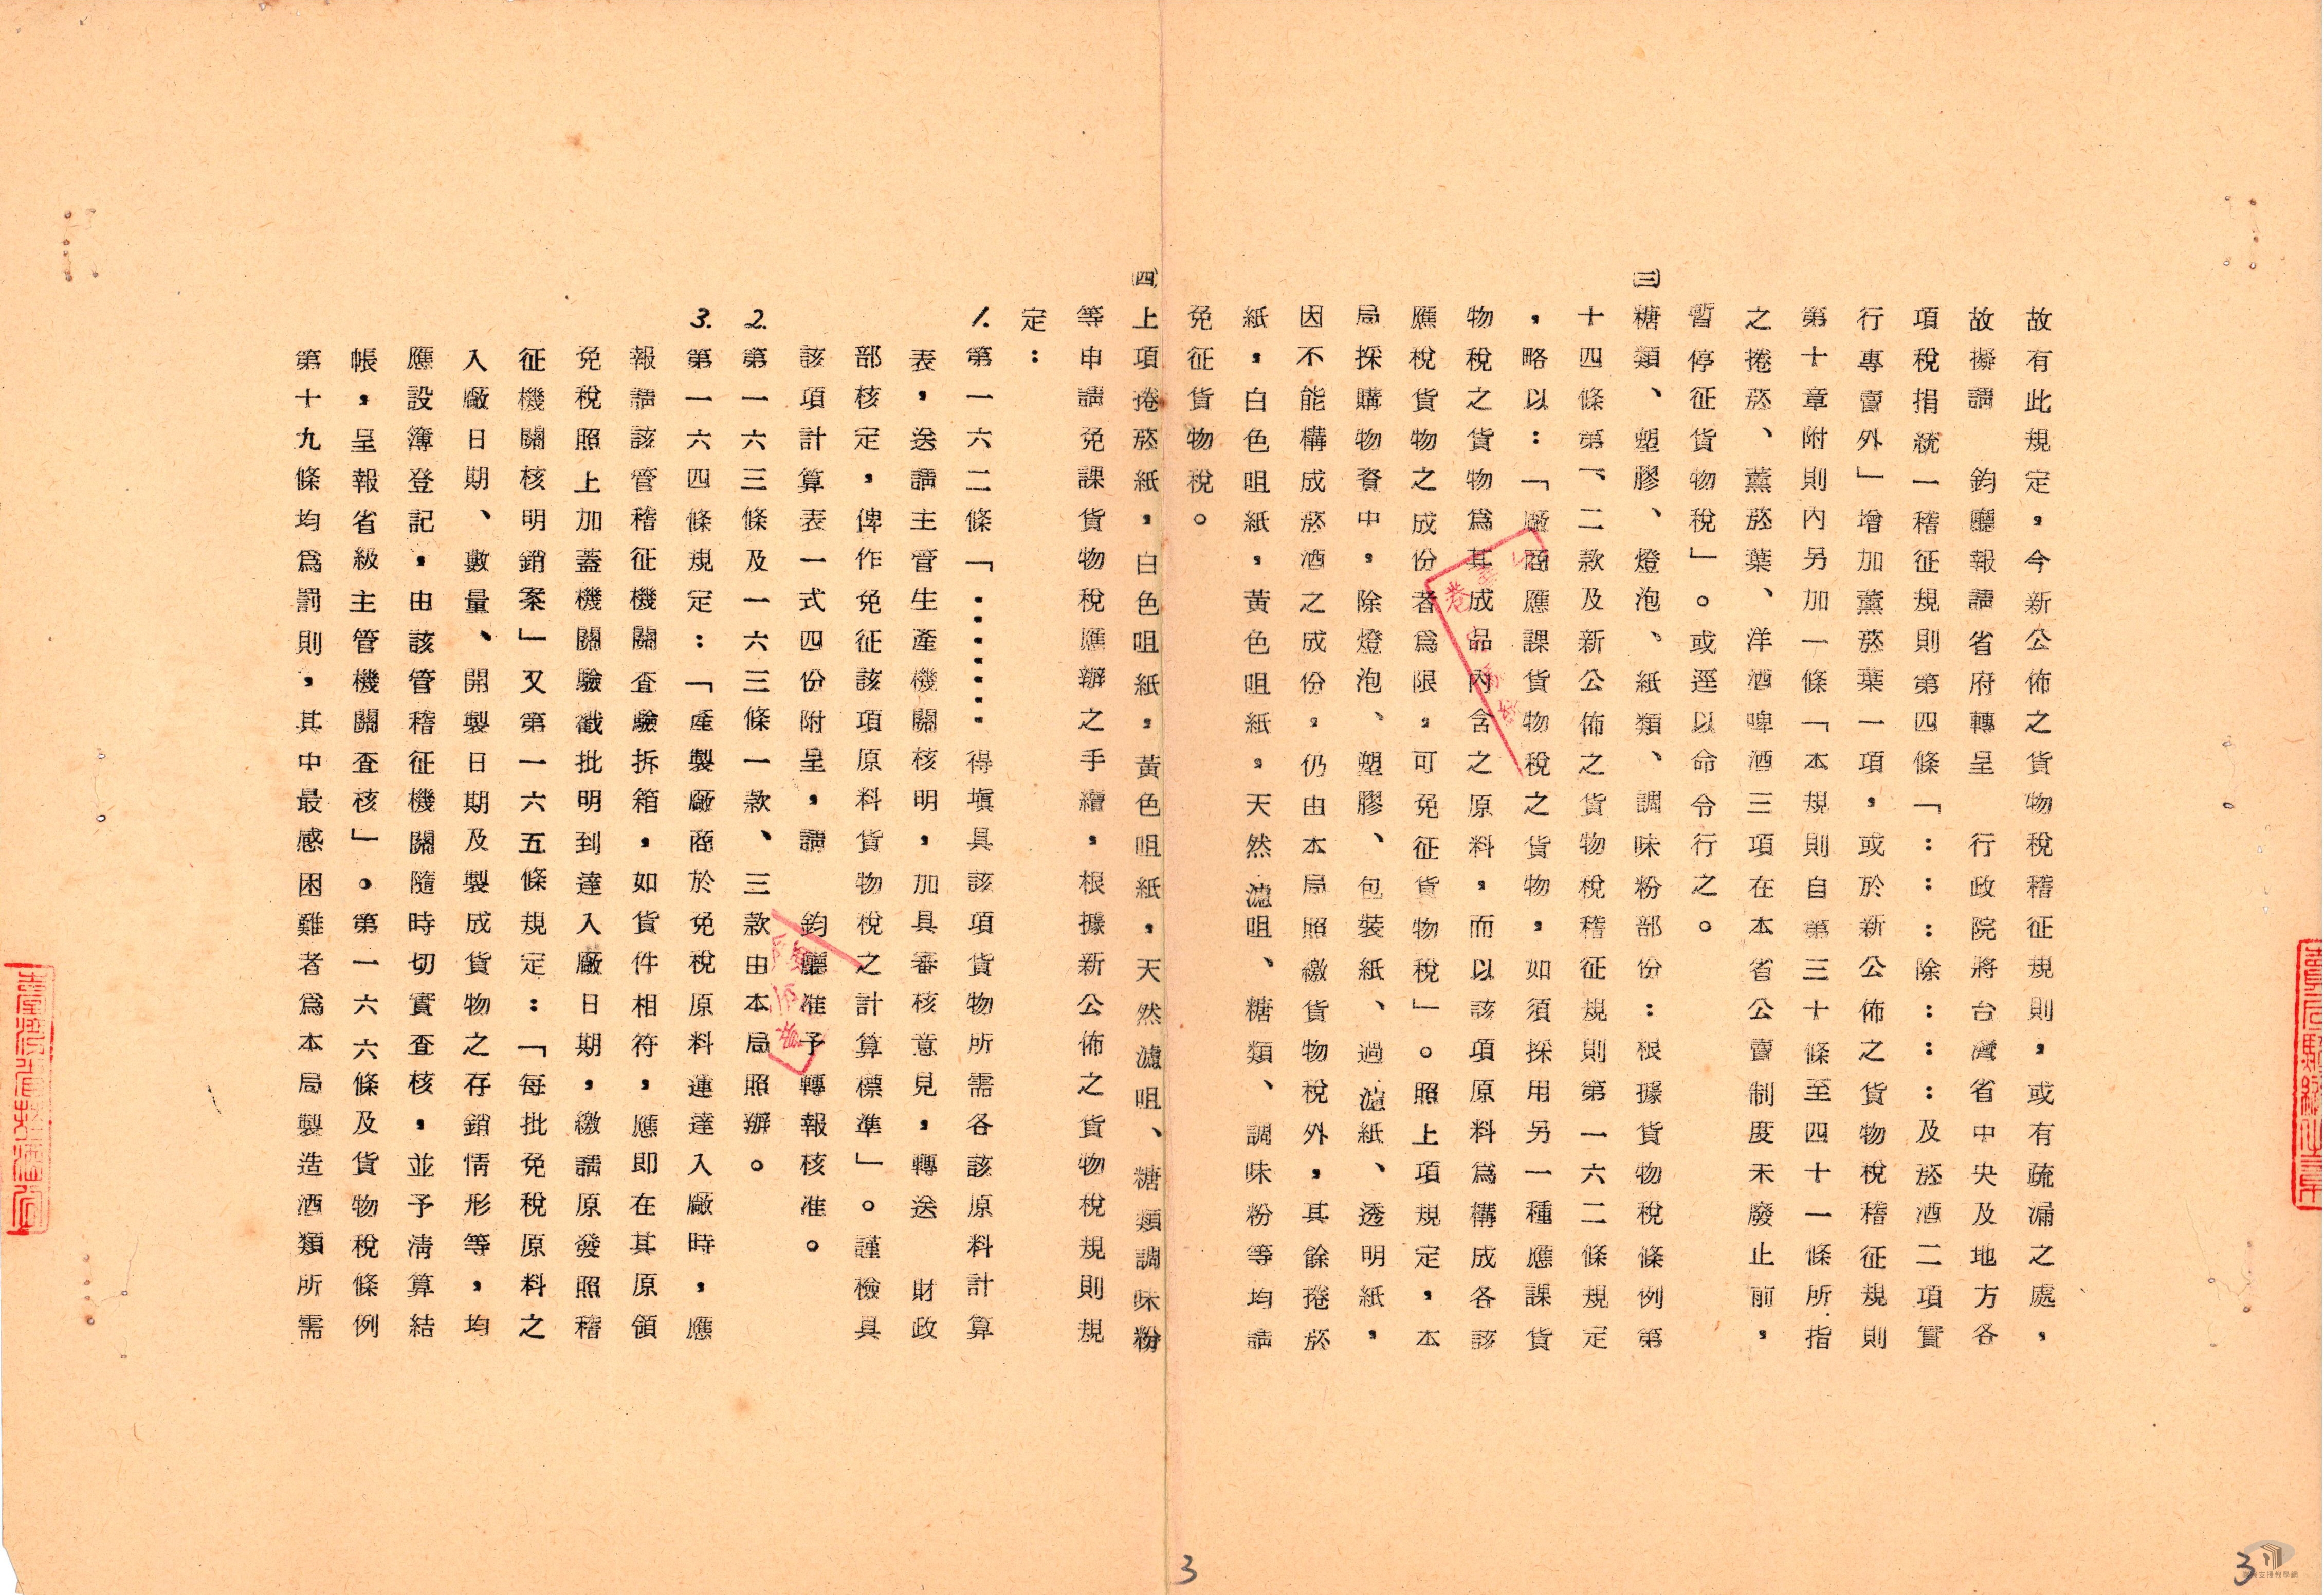 故有此規定，今新公佈之貨物稅稽征規則，或有疏漏之處，
故擬請　鈞廳報請省府轉呈　行政院將台灣省中央及地方各
項稅捐統一稽征規則第四條「：：：除：：：及菸酒二項實
行專賣外」增加薰菸葉一項，或於新公佈之貨物稅稽征規則
第十章附則內另加一條「本規則自第三十條至四十一條所指
之捲菸、薰菸葉、洋酒啤酒三項在本省公賣制度未廢止前，
暫停征貨物稅」。或逕以命令行之。
㈢糖類、塑膠、燈泡、紙類、調味粉部份：根據貨物稅條例第
十四條第一、二款及新公佈之貨物稅稽征規則第一六二條規定
，略以：「廠商應課貨物稅之貨物，如須採用另一種應課貨
物稅之貨物為其成品內含之原料，而以該項原料為構成各該
應稅貨物之成份者為限，可免征貨物稅」。照上項規定，本
局採購物資中，除燈泡、塑膠、包裝紙、過濾紙、透明紙，
因不能構成菸酒之成份，仍由本局照繳貨物稅外，其餘捲菸
紙，白色咀紙，黃色咀紙，天然濾咀、糖類、調味粉等均請
免征貨物稅。
㈣上項捲菸紙，白色咀紙，黃色咀紙，天然濾咀、糖類調味粉
等申請免課貨物稅應辦之手續，根據新公佈之貨物稅規則規
定：
1.第一六二條「………得塡具該項貨物所需各該原料計算
表，送請主管生產機關核明，加具審核意見，轉送　財政
部核定，俾作免征該項原料貨物稅之計算標準」。謹檢具
該項計算表一式四份附呈，請　鈞廳准予轉報核准。
2.第一六三條及一六三條一款、三款由本局照辦。
3.第一六四條規定：「產製廠商於免稅原料運達入廠時，應
報請該管稽征機關查驗拆箱，如貨件相符，應即在其原領
免稅照上加蓋機關驗戳批明到達入廠日期，繳請原發照稽
征機關核明銷案」又第一六五條規定：「每批免稅原料之
入廠日期、數量、開製日期及製成貨物之存銷情形等，均
應設簿登記，由該管稽征機關隨時切實查核，並予清算結
帳，呈報省級主管機關查核」。第一六六條及貨物稅條例
第十九條均為罰則，其中最感困難者為本局製造酒類所需
3
3